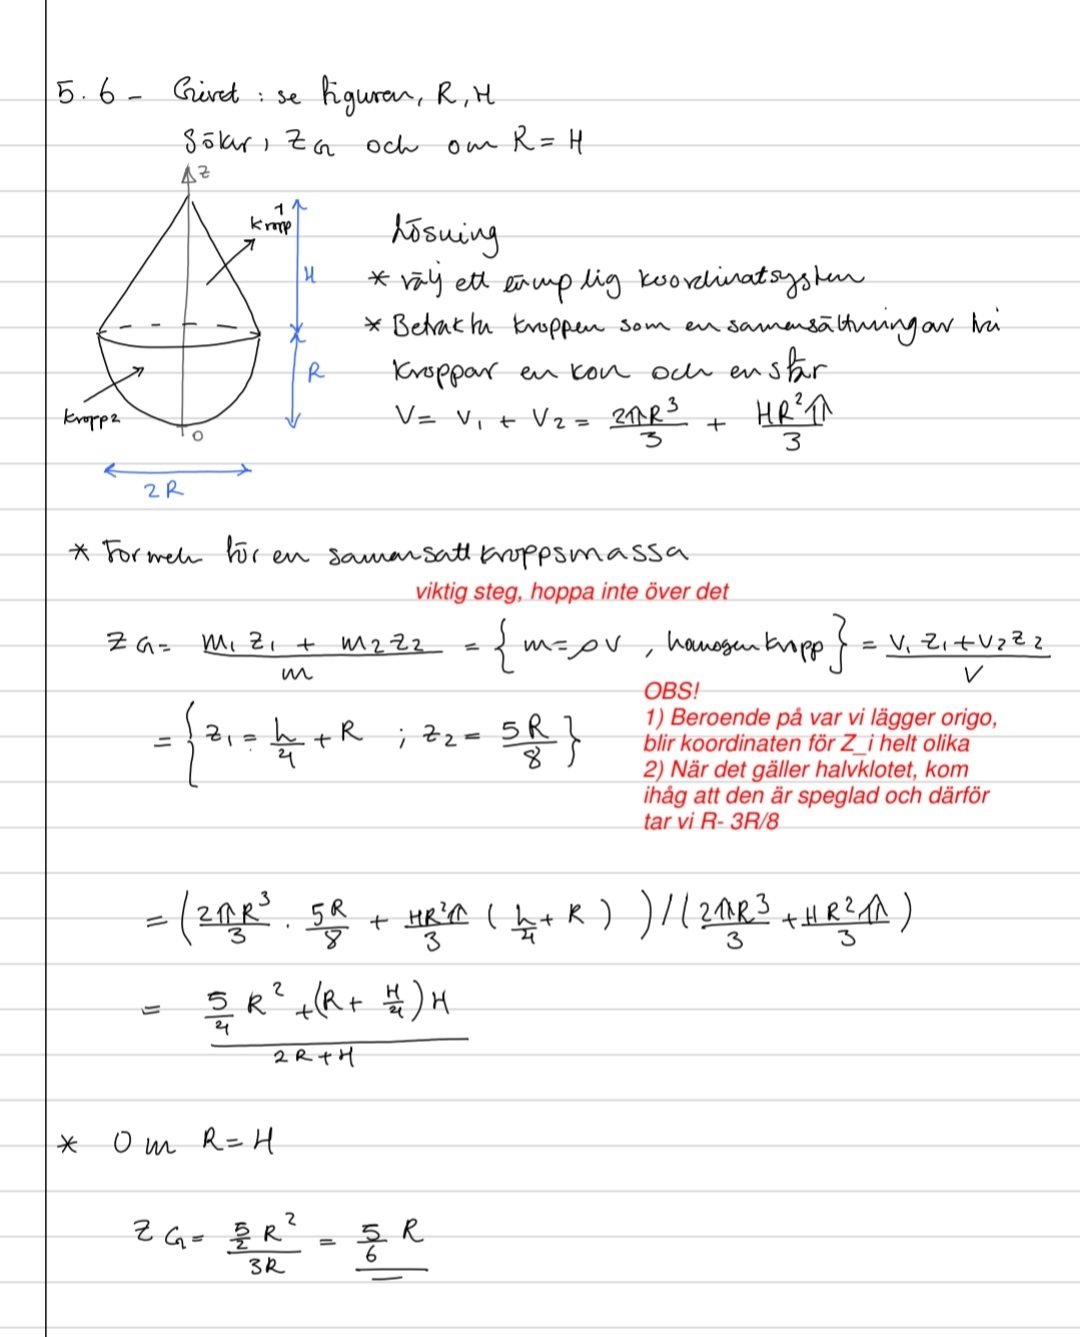 5.6 - Givet : se figuren, R, H
Söker, ZG och om R = H
Z
kropp 1
H
R
kropp 2
O
2R
Lösning
* välj ett lämplig koordinatsystem
* Betrakta kroppen som en samensättning av två
kroppar en kon och en sfär
V = V₁ + V₂ = 2πR³/3 + HR²π/3
* Formeln för en samensatt kroppsmassa
viktig steg, hoppa inte över det
ZG = (m₁z₁ + m₂z₂)/m = { m=ρV , homogen kropp } = (V₁z₁+V₂z₂)/V
= { z₁ = h/4 + R ; z₂ = 5R/8 }
OBS!
1) Beroende på var vi lägger origo,
blir koordinaten för Z_i helt olika
2) När det gäller halvklotet, kom
ihåg att den är speglad och därför
tar vi R- 3R/8
= (2πR³/3 · 5R/8 + HR²π/3 (h/4 + R))/(2πR³/3 + HR²π/3)
= (5/4 R² + (R + H/4)H)/(2R+H)
* Om R = H
ZG = (5/2 R²)/(3R) = 5/6 R